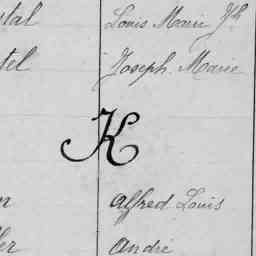 ntal Louis Marie Jh
tel Joseph Marie
K
n Alfred Louis
ler André